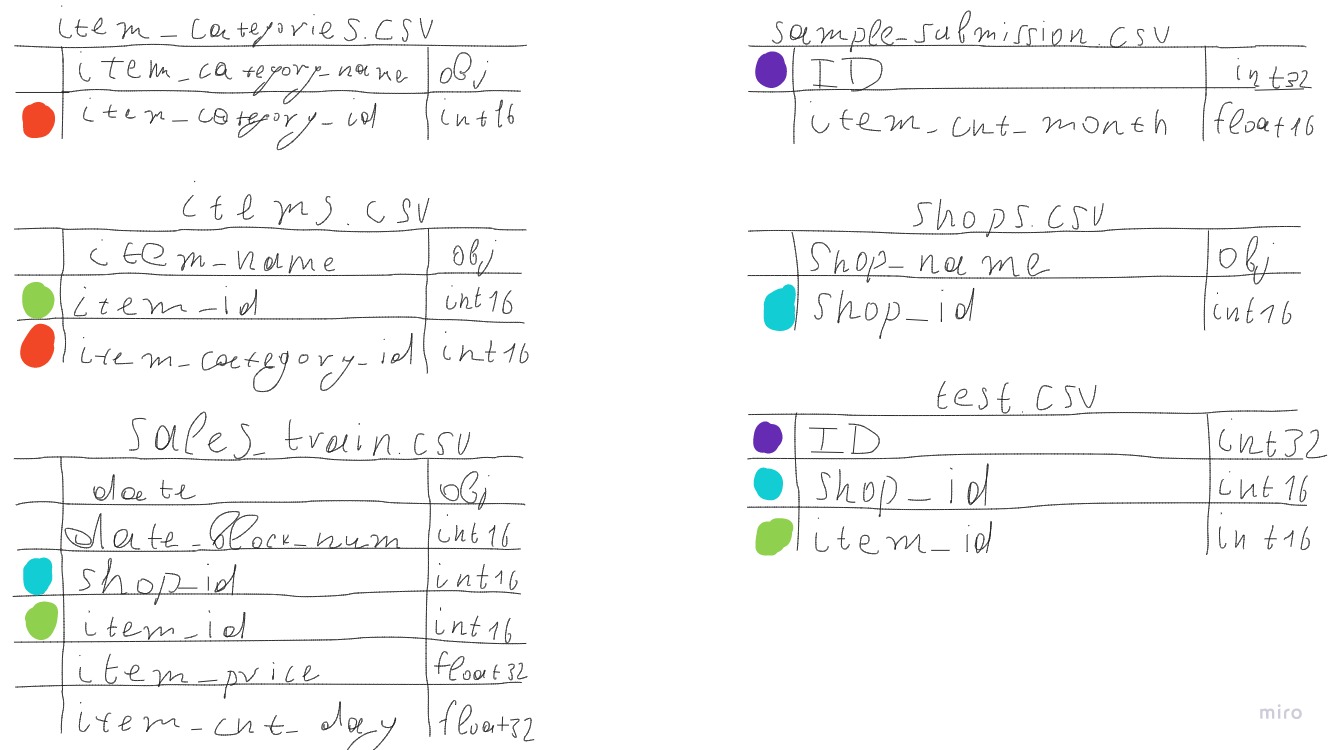 item_categories.csv
item_category_name obj
item_category_id int16
items.csv
item_name obj
item_id int16
item_category_id int16
sales_train.csv
date obj
date_block_num int16
shop_id int16
item_id int16
item_price float32
item_cnt_day float32
sample_submission.csv
ID int32
item_cnt_month float16
shops.csv
shop_name obj
shop_id int16
test.csv
ID int32
shop_id int16
item_id int16
miro